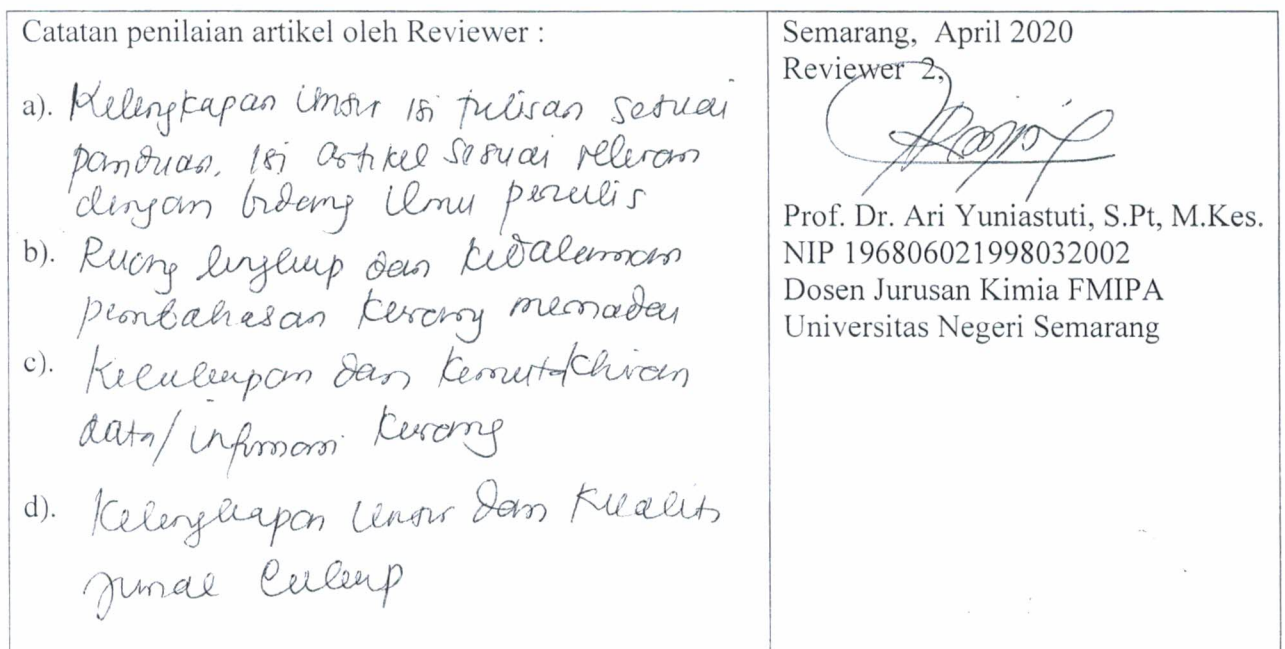 Catatan penilaian artikel oleh Reviewer :
a). Kelengkapan unsur isi tulisan sesuai
panduan. isi artikel sesuai relevan
dengan bidang ilmu penulis
b). Ruang lingkup dan kedalaman
pembahasan kurang memadai
c). Kecukupan dan kemutakhiran
data/informasi kurang
d). Kelengkapan unsur dan kualits
jurnal cukup
Semarang, April 2020
Reviewer 2,
Prof. Dr. Ari Yuniastuti, S.Pt, M.Kes.
NIP 196806021998032002
Dosen Jurusan Kimia FMIPA
Universitas Negeri Semarang